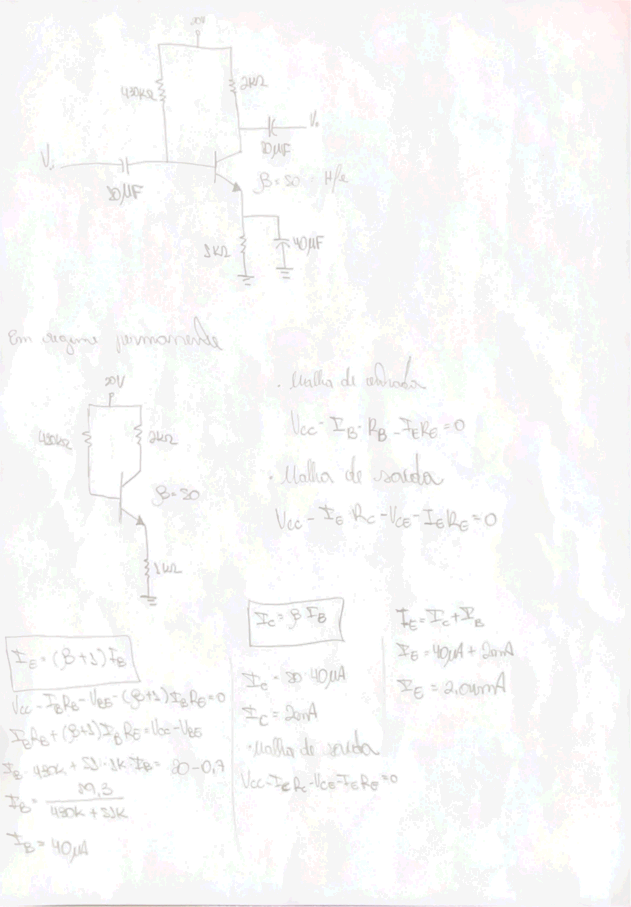 20V
430kΩ
2kΩ
Vo
10µF
Vi
10µF
β=50
1kΩ
40µF
Em regime permanente
20V
430kΩ
2kΩ
β=50
1kΩ
· Malha de entrada
Vcc - IB · RB - IERE = 0
· Malha de saída
Vcc - IE RC - VCE - IERE = 0
IE = (β+1) IB
Vcc - IBRB - VBE - (β+1) IBRE = 0
IBRB + (β+1) IBRE = Vcc - VBE
IB · 430k + 51 · 1k · IB = 20 - 0,7
IB = 19,3
430k + 51k
IB = 40µA
IC = β IB
IC = 50 · 40µA
IC = 2mA
· Malha de saída
Vcc - ICRC - VCE - IERE = 0
IE = IC + IB
IE = 40µA + 2mA
IE = 2,04mA